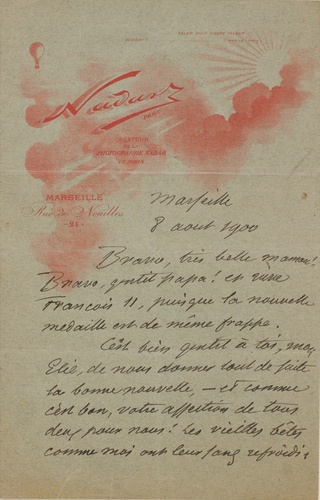 Nadar
PARIS
CRÉATEUR
DE LA
PHOTOGRAPHIE NADAR
DE PARIS
MARSEILLE
Rue de Noailles
- 21 -
Marseille
8 aout 1900
Bravo, très belle maman!
Bravo, gentil papa! et vive
François II, puisque la nouvelle
medaille est de même frappe.
C'est bien gentil à toi, mon
Elie, de nous donner tout de suite
la bonne nouvelle, — et comme
c'est bon, votre affection de tous
deux pour nous! Les vieilles bêtes
comme moi ont leur sang refroidi :